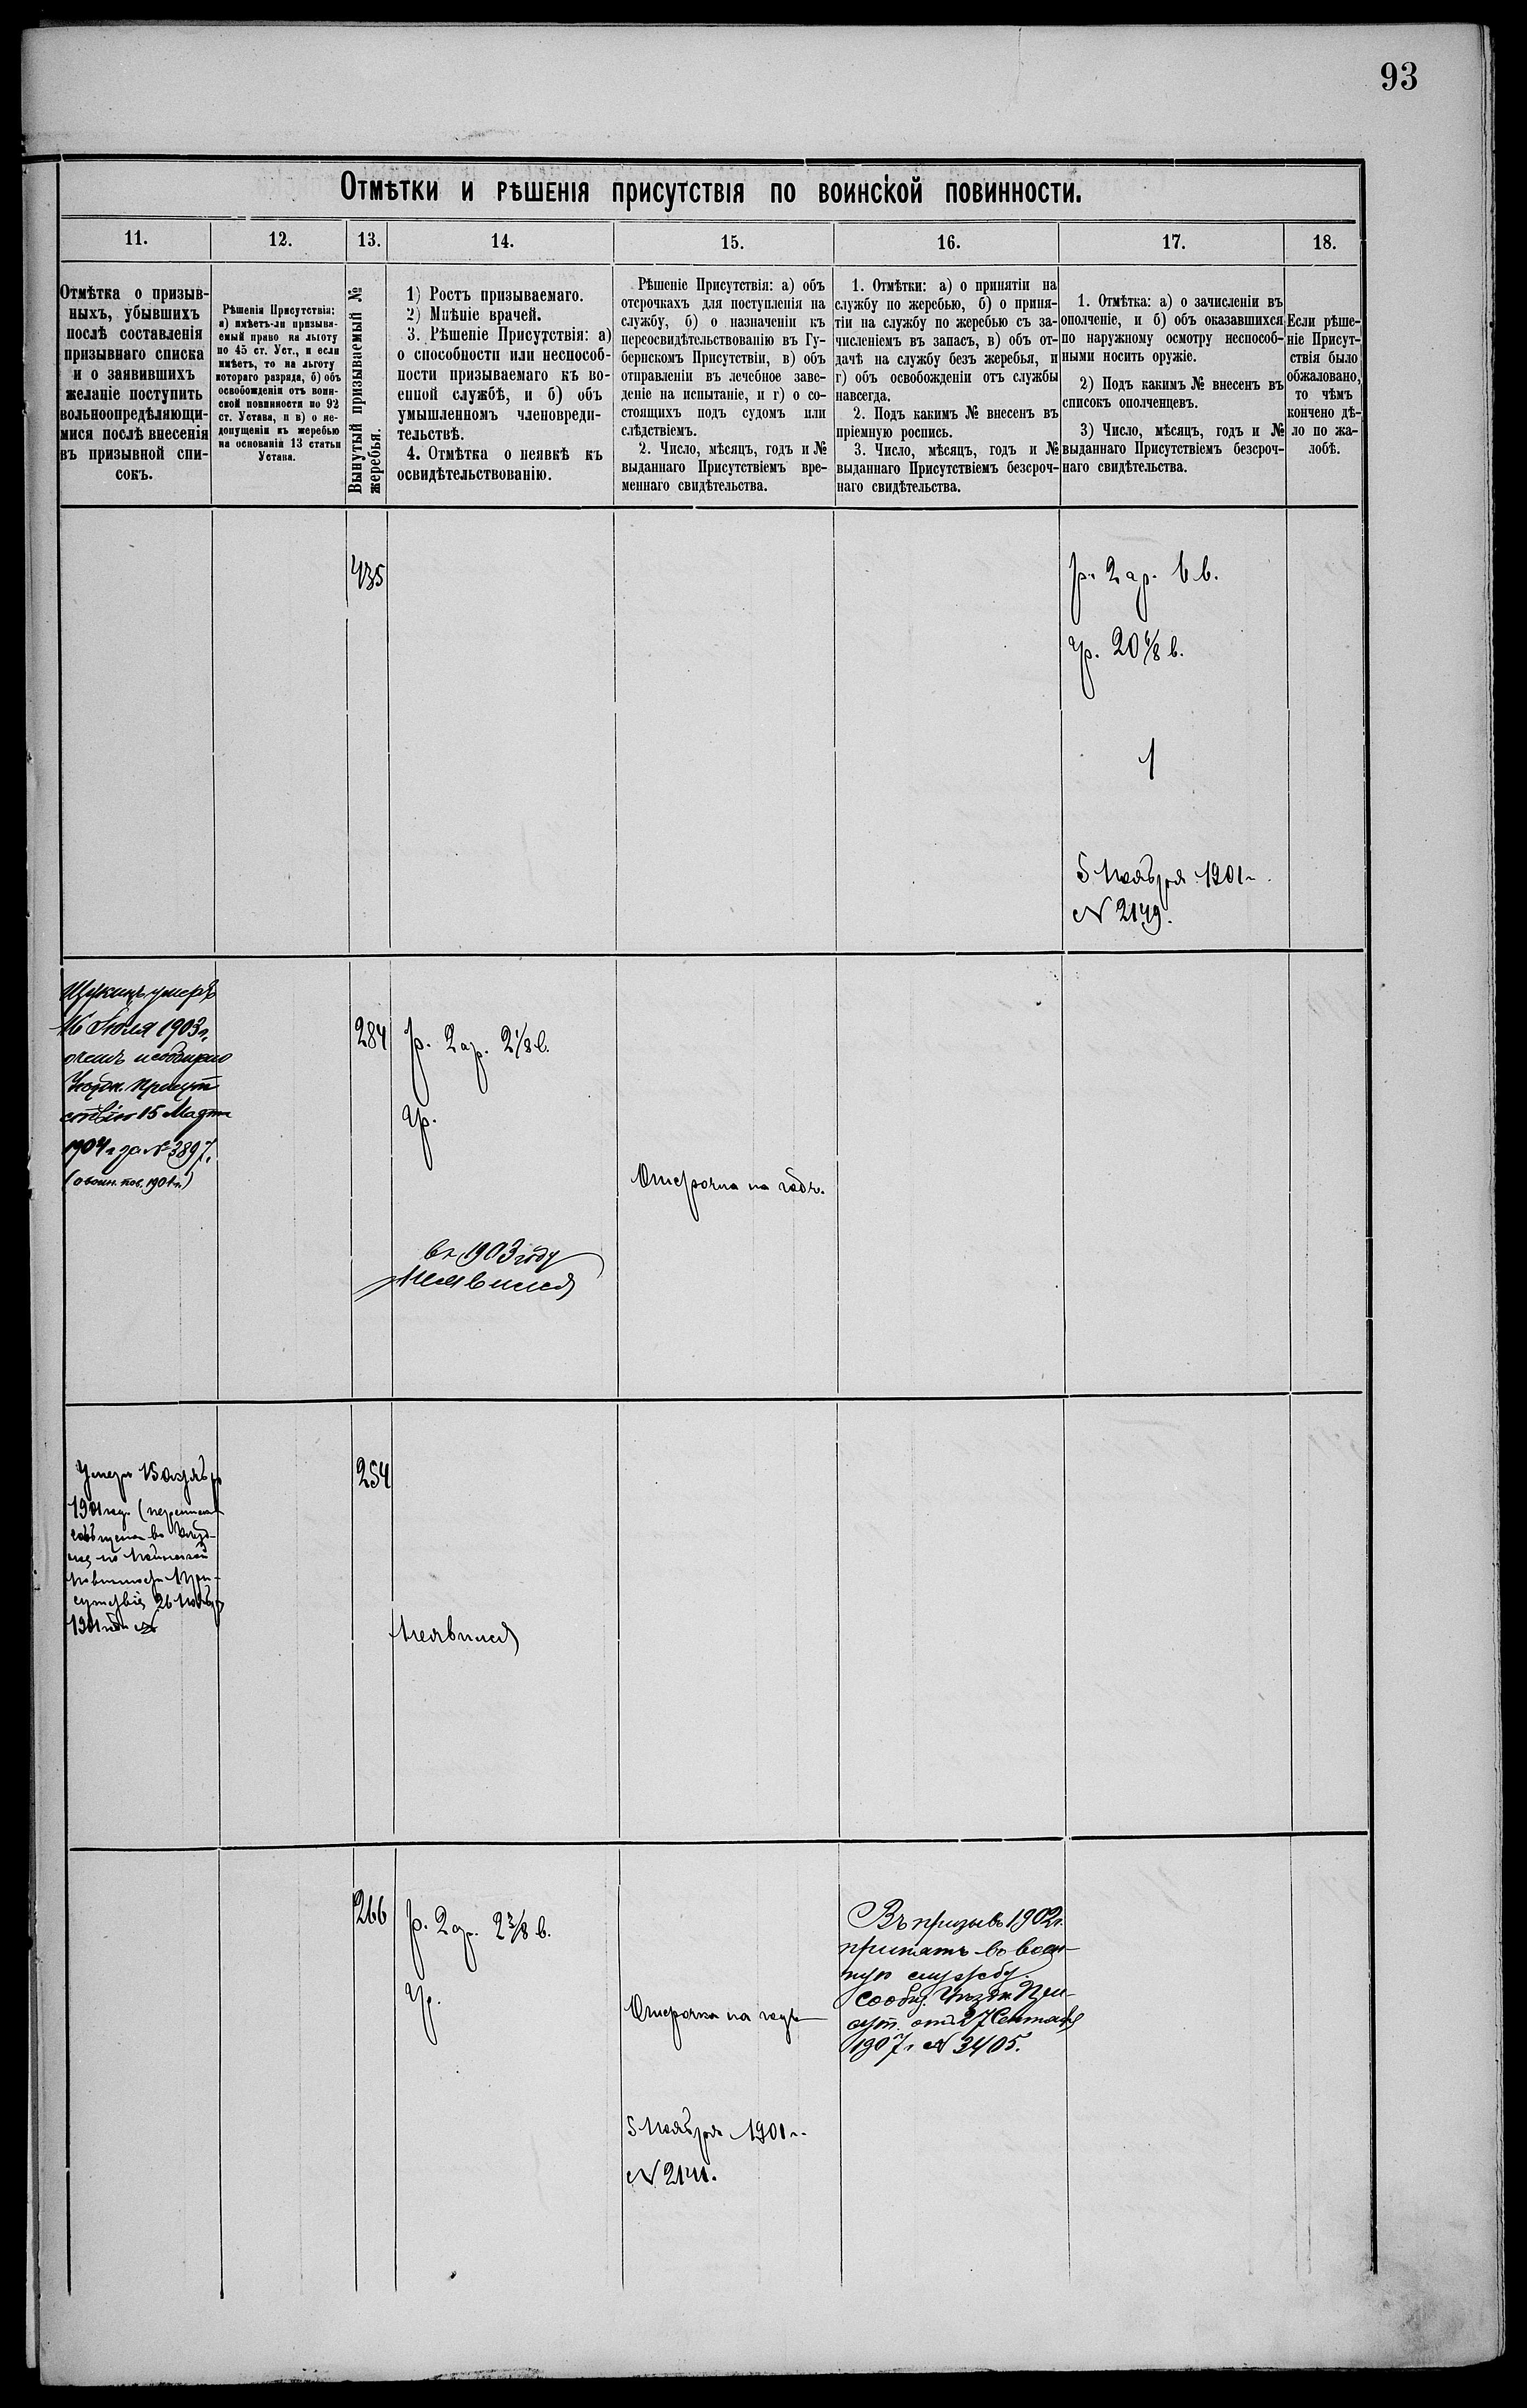 93
Отмѣтки и рѣшенія присутствія по воинской повинности.
11.
12.
13.
14.
15.
16.
17.
18.
Отмѣтка о призыв-
ныхъ, убывшихъ
послѣ составленія
призывнаго списка
и о заявившихъ
желаніе поступить
вольноопредѣляющи-
мися послѣ внесенія
въ призывной спи-
сокъ.
Рѣшенія Присутствія:
а) имѣетъ-ли призыва-
емый право на льготу
по 45 ст. Уст., и если
имѣетъ, то на льготу
котораго разряда, б) объ
освобожденіи отъ воин-
ской повинности по 92
ст. Устава, и в) о не-
допущеніи къ жеребью
на основаніи 13 статьи
Устава.
Вынутый призываемый №
жеребья.
1) Ростъ призываемаго.
2) Мнѣніе врачей.
3. Рѣшеніе Присутствія: а)
о способности или неспособ-
ности призываемаго къ во-
енной службѣ, и б) объ
умышленномъ членовреди-
тельствѣ.
4. Отмѣтка о неявкѣ къ
освидѣтельствованію.
Рѣшеніе Присутствія: а) объ
отсрочкахъ для поступленія на
службу, б) о назначеніи къ
переосвидѣтельствованію въ Гу-
бернскомъ Присутствіи, в) объ
отправленіи въ лечебное заве-
деніе на испытаніе, и г) о со-
стоящихъ подъ судомъ или
слѣдствіемъ.
2. Число, мѣсяцъ, годъ и №
выданнаго Присутствіемъ вре-
меннаго свидѣтельства.
1. Отмѣтки: а) о принятіи на
службу по жеребью, б) о приня-
тіи на службу по жеребью съ за-
численіемъ въ запасъ, в) объ от-
дачѣ на службу безъ жеребья, и
г) объ освобожденіи отъ службы
навсегда.
2. Подъ какимъ № внесенъ въ
пріемную роспись.
3. Число, мѣсяцъ, годъ и №
выданнаго Присутствіемъ безсроч-
наго свидѣтельства.
1. Отмѣтка: а) о зачисленіи въ
ополченіе, и б) объ оказавшихся
по наружному осмотру неспособ-
ными носить оружіе.
2) Подъ какимъ № внесенъ въ
списокъ ополченцевъ.
3) Число, мѣсяцъ, годъ и №
выданнаго Присутствіемъ безсроч-
наго свидѣтельства.
Если рѣше-
ніе Присут-
ствія было
обжаловано,
то чѣмъ
кончено дѣ-
ло по жа-
лобѣ.
435
р. 2 ар. 6 в.
гр. 20 6/8 в.
1
5 Ноября 1901 г.
N 2149.
умеръ
16 Іюля 1903 г.
Присут
ствію 15 Марта
1904 г. за № 3897.
(о воин. пов. 1901 г.)
284
р. 2 ар. 2 1/8 в.
гр.
въ 1903 году
Неявился
Отсрочка на годъ.
Умеръ 15 Октября
1901 года
по Воинской
повинности При-
сутствіе 26 Ноября
1901 года
254
Неявился
266
р. 2 ар. 2 3/8 в.
гр.
Отсрочка на годъ
5 Ноября 1901 г.
N 2141.
Въ призывъ 1902 г.
принятъ въ воен-
ную службу.
Сообщ. Уѣздн. При-
сут. отъ 27 Сентября
1907 г. N 3405.